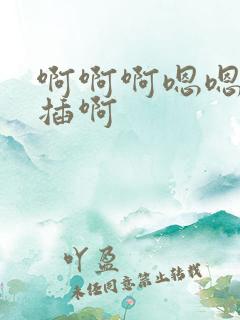 啊啊啊嗯嗯
插啊
吖盈
未经同意禁止转载